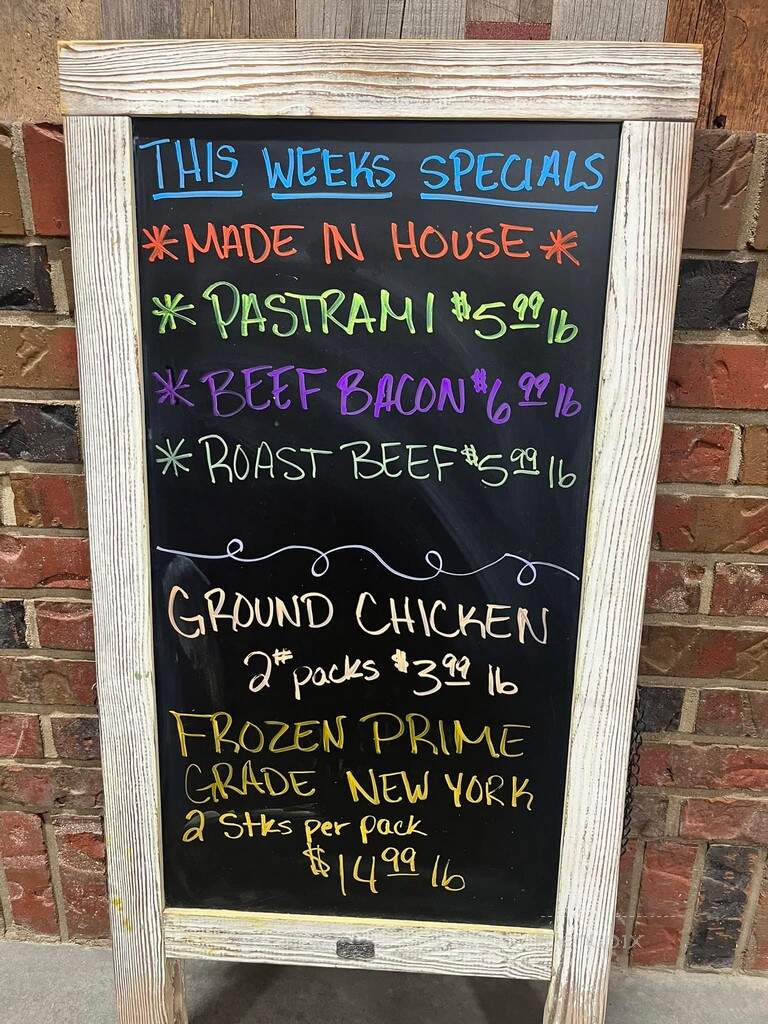 THIS WEEKS SPECIALS
*MADE IN HOUSE*
* PASTRAMI $5.99 lb
* BEEF BACON $6.99 lb
* ROAST BEEF $5.99 lb
GROUND CHICKEN
2# packs $3.99 lb
FROZEN PRIME
GRADE NEW YORK
2 Stks per pack
$14.99 lb